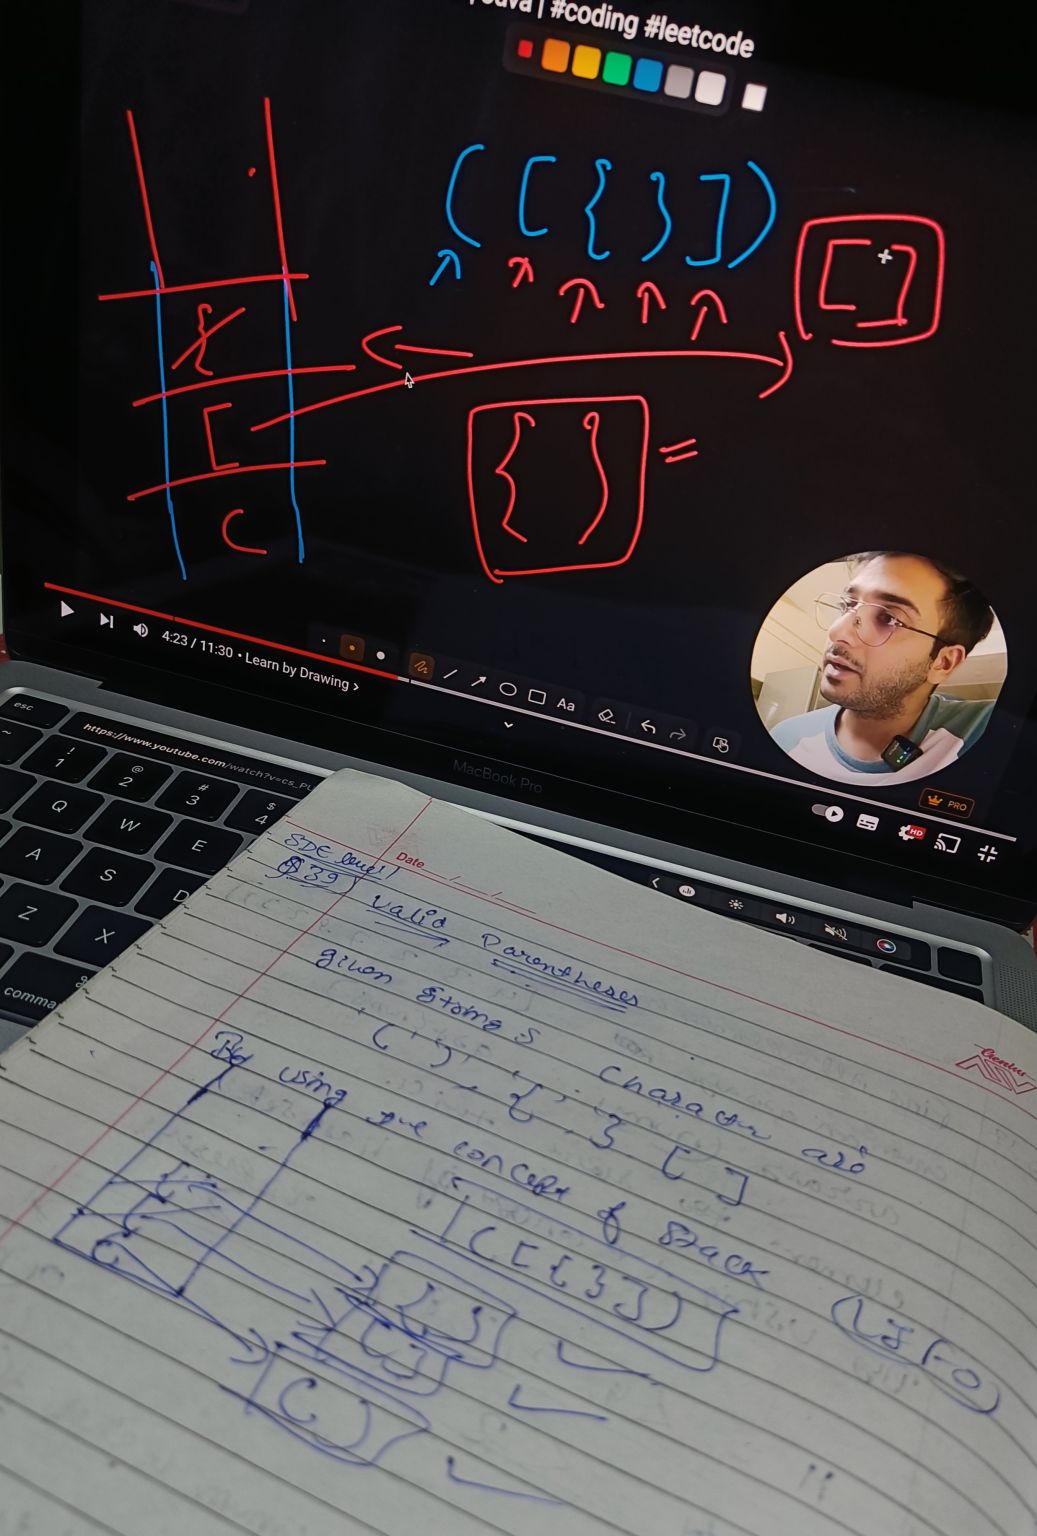 | #coding #leetcode
( [ { } ] )
[ ]
{
[
(
{ } =
4:23 / 11:30 • Learn by Drawing >
Aa
PRO
HD
MacBook Pro
esc
https://www.youtube.com/watch?v=cs_PU
~
! 1
@ 2
# 3
$ 4
Q W E
A S D
Z X
comma
Date
SDE level
Q 39
Valid Parentheses
given string s character are
'(', ')', '{', '}' [ ]
By using the concept of Stack (LIFO)
( [ { } ] )
{
[
(
{ }
[ ]
( )